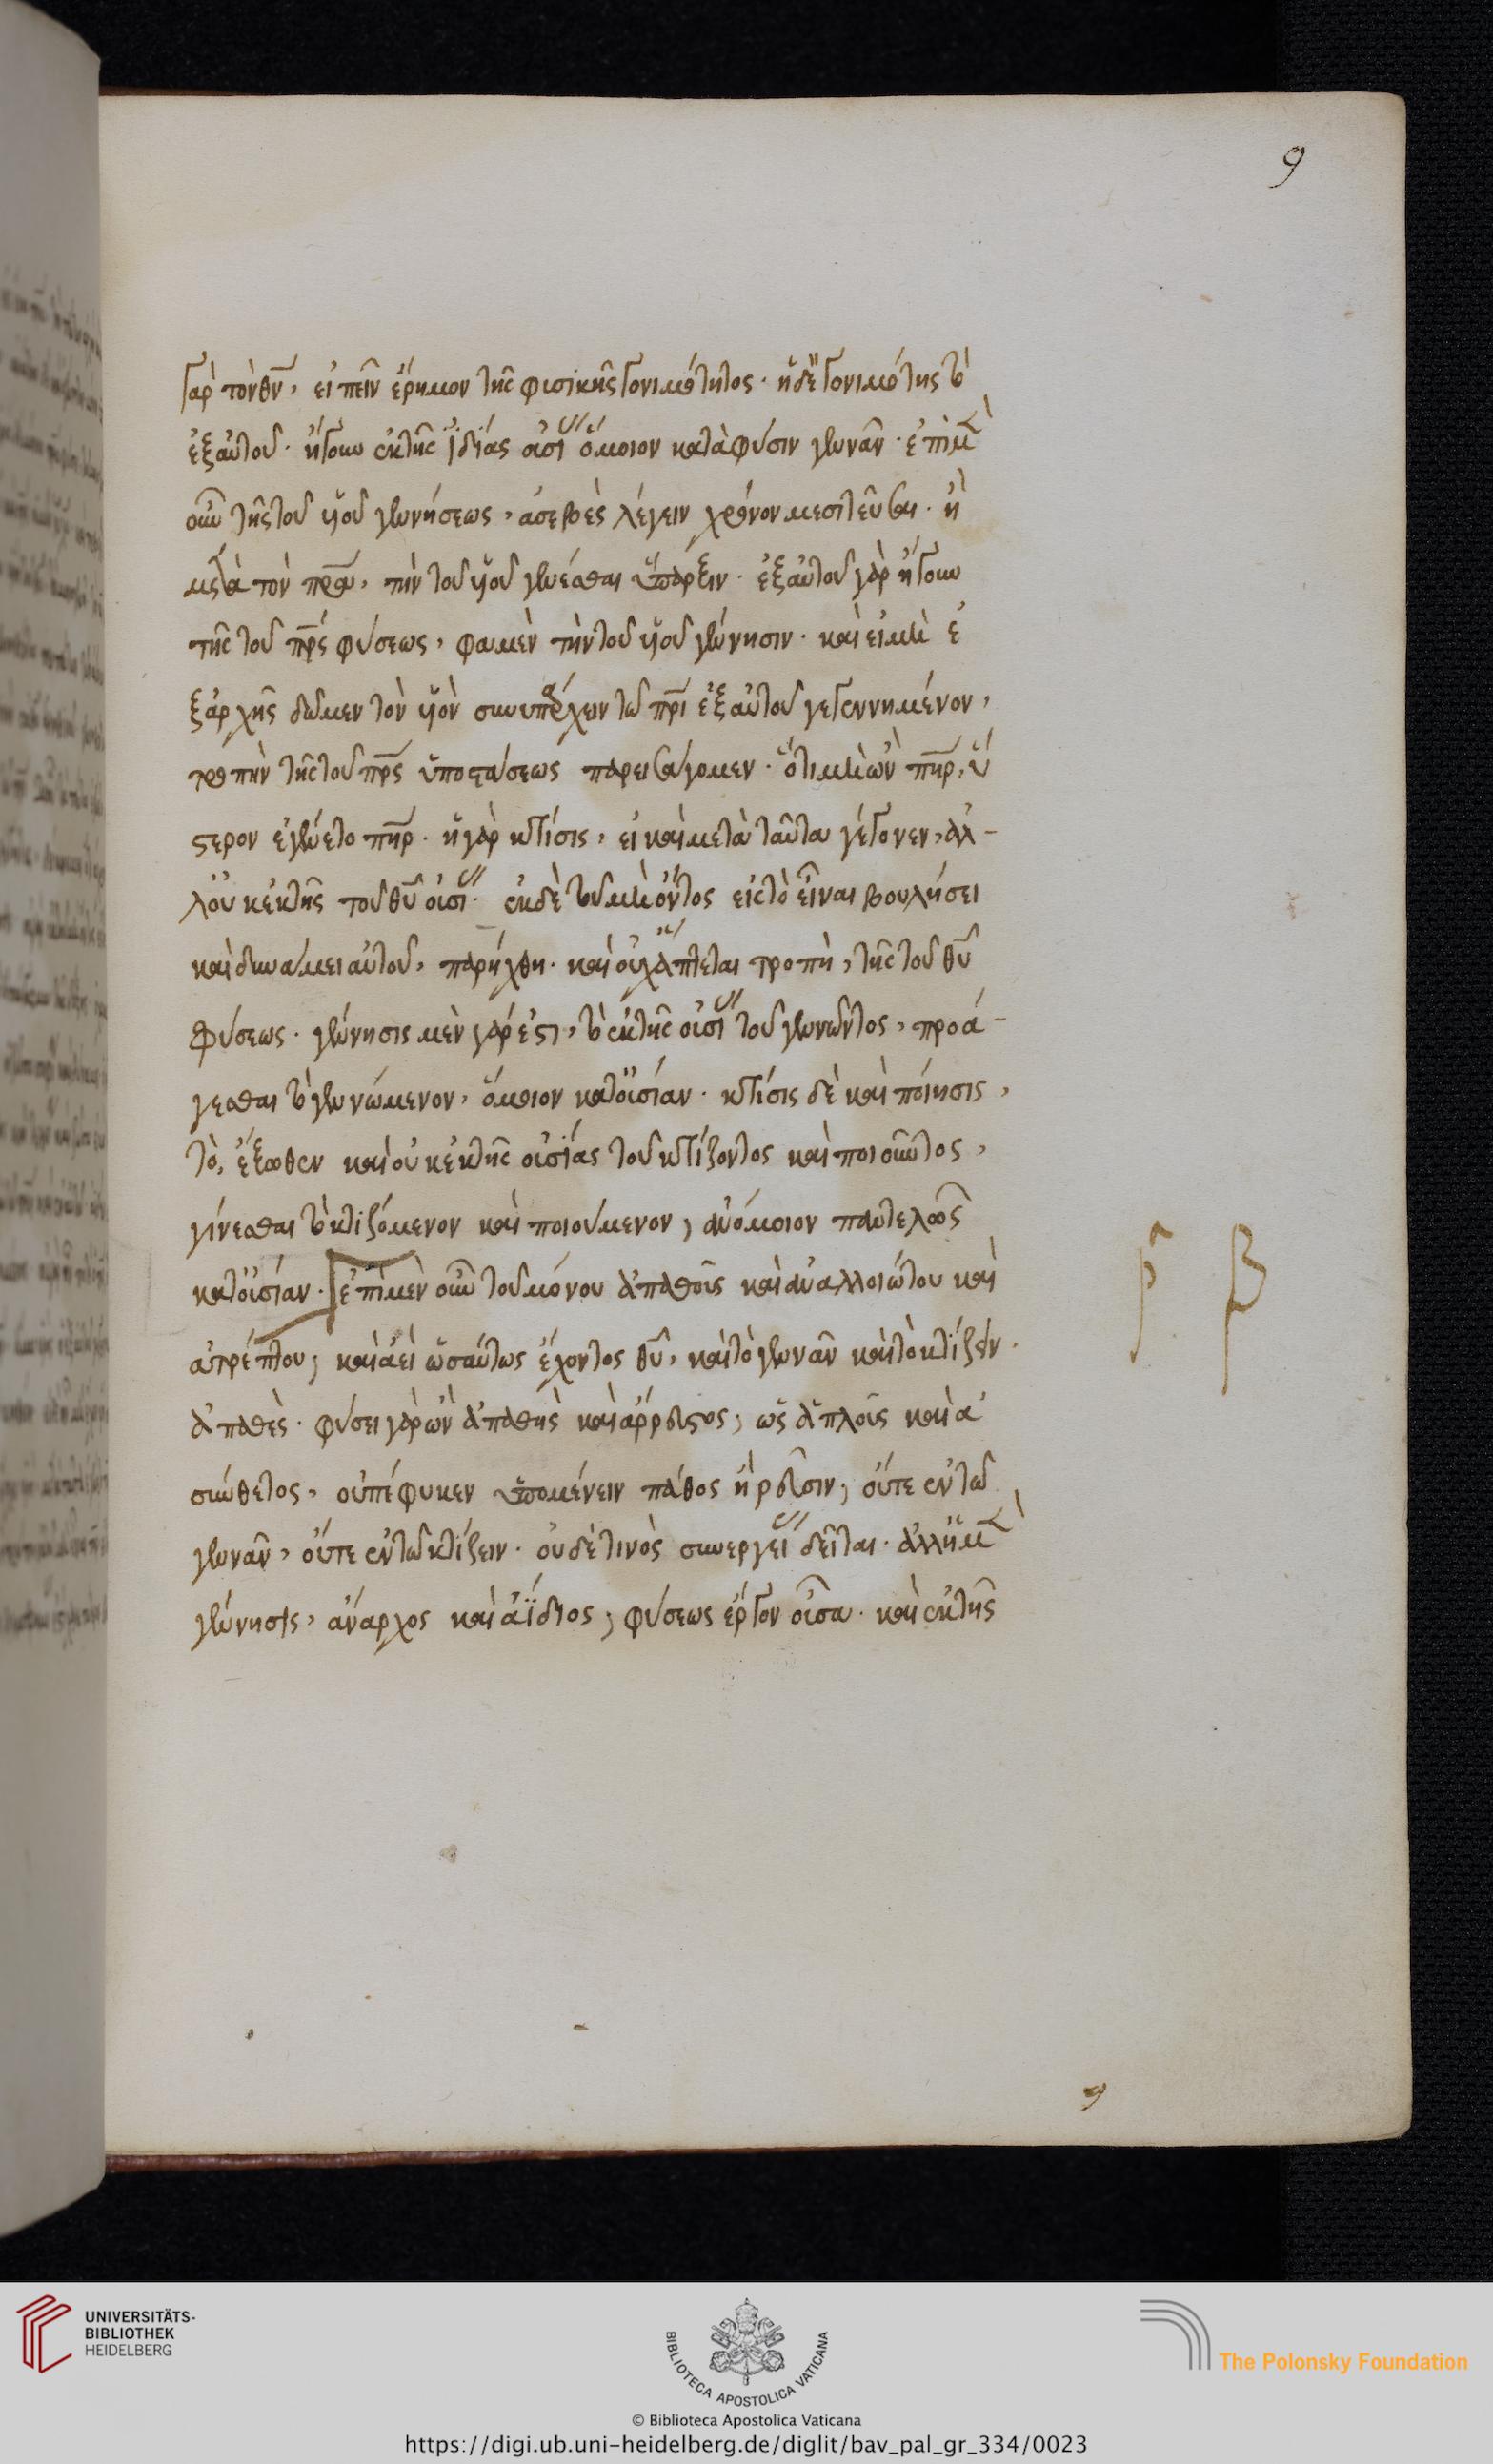 9
γὰρ τὸν θν̅, εἰπεῖν ἔρημον τῆς φυσικῆς γονιμότητος· ἡ δὲ γονιμότης τὸ
ἐξ αὐτοῦ· ἤγουν ἐκ τῆς ἰδίας οὐσί ὅμοιον κατὰ φύσιν γεννᾶν· ἐπὶ μ
οὖν τῆς τοῦ υἱοῦ γεννήσεως, ἀσεβὲς λέγειν χρόνον μεσιτεῦσαι· ἢ
μετὰ τὸν πρα̅, τὴν τοῦ υἱοῦ γενέσθαι ὕπαρξιν· ἐξ αὐτοῦ γὰρ ἤγουν
τῆς τοῦ πρ̅ς φύσεως, φαμὲν τὴν τοῦ υἱοῦ γέννησιν· καὶ εἰ μὴ ἐ
ξ ἀρχῆς δῶμεν τὸν υἱὸν συνυπάρχειν τῶ πρ̅ι ἐξ αὐτοῦ γεγεννημένον,
τροπὴν τῆς τοῦ πρ̅ς ὑποστάσεως παρεισάγομεν· ὅτι μὴ ὢν πη̅ρ, ὕ
στερον ἐγένετο πη̅ρ· ἡ γὰρ κτίσις, εἰ καὶ μετὰ ταῦτα γέγονεν, ἀλ-
λ' οὐκ ἐκ τῆς τοῦ θυ̅ οὐσί· ἐκ δὲ τοῦ μὴ ὄντος εἰς τὸ εἶναι βουλήσει
καὶ δυνάμει αὐτοῦ, παρήχθη· καὶ οὐχ ἅπτεται τροπὴ, τῆς τοῦ θυ̅
φύσεως· γέννησις μὲν γάρ ἐστι, τὸ ἐκ τῆς οὐσί τοῦ γεννῶντος, προά-
γεσθαι τὸ γεννώμενον, ὅμοιον κατ' οὐσίαν· κτίσις δὲ καὶ ποίησις,
τὸ, ἔξωθεν καὶ οὐκ ἐκ τῆς οὐσίας τοῦ κτίζοντος καὶ ποιοῦντος,
γίνεσθαι τὸ κτιζόμενον καὶ ποιούμενον, ἀνόμοιον παντελῶς
κατ' οὐσίαν· ἐπὶ μὲν οὖν τοῦ μόνου ἀπαθοῦς καὶ ἀναλλοιώτου καὶ
ἀτρέπτου, καὶ ἀεὶ ὡσαύτως ἔχοντος θυ̅, καὶ τὸ γεννᾶν καὶ τὸ κτίζειν·
ἀπαθὲς· φύσει γὰρ ὢν ἀπαθὴς καὶ ἄρρευστος, ὡς ἁπλοῦς καὶ ἀ
σύνθετος, οὐ πέφυκεν ὑπομένειν πάθος ἢ ρεῦσιν, οὔτε ἐν τῶ
γεννᾶν, οὔτε ἐν τῶ κτίζειν· οὐδὲ τινὸς συνεργεί δεῖται· ἀλλ' ἡ μ
γέννησις, ἄναρχος καὶ ἀΐδιος, φύσεως ἔργον οὖσα· καὶ ἐκ τῆς
β
9
UNIVERSITÄTS-
BIBLIOTHEK
HEIDELBERG
BIBLIOTECA APOSTOLICA VATICANA
The Polonsky Foundation
© Biblioteca Apostolica Vaticana
https://digi.ub.uni-heidelberg.de/diglit/bav_pal_gr_334/0023